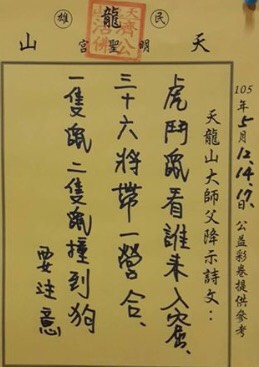 民 龍 雄
天 明聖宮 山
濟公
活佛
105年5月12.14.17日 公益彩卷提供參考
天龍山大師父降示詩文：
虎鬥鼠看誰未入窟、
三十六將帶一營合、
一隻鼠二隻鼠撞到狗
要注意